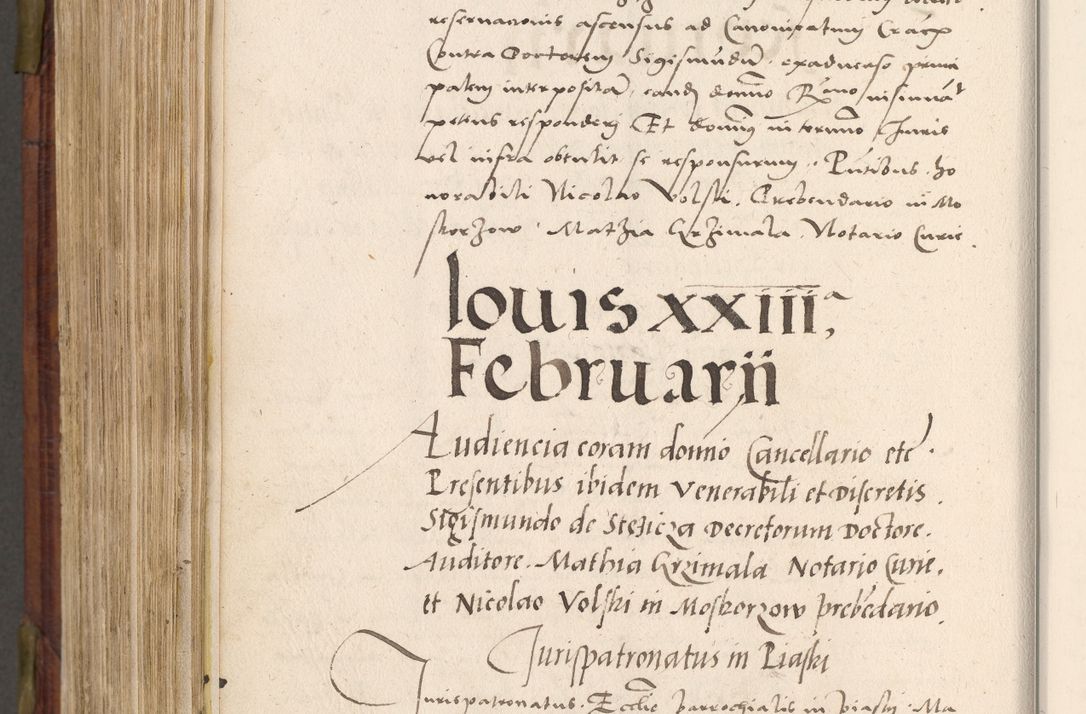 reservacionis ascensus ad Canonicatum Craco
Contra Doctorem Sigismundū. exadverso princi
palem interpositam, eandē domino Rmo insinuat
petens responderj Et dominus in termino Juris
vel infra obtulit se responsurum. Pñtibus ho
norabili Nicolao Volski. Prebendario in Mo
skorzow. Mathia Grzimala. Notario Curie.
louis xxiiiia,
Februarii
Audiencia coram domno Cancellario etc.
Presentibus ibidem venerabili et Discretis.
Sigismundo de Stezicza Decretorum Doctore.
Auditore. Mathia Grzimala Notario Curie.
et Nicolao Volski in Moskorzow prebēdario.
Jurispatronatus in Piaski
Jurispatronatus. Ecclie parrochialis in Piaski. Ma